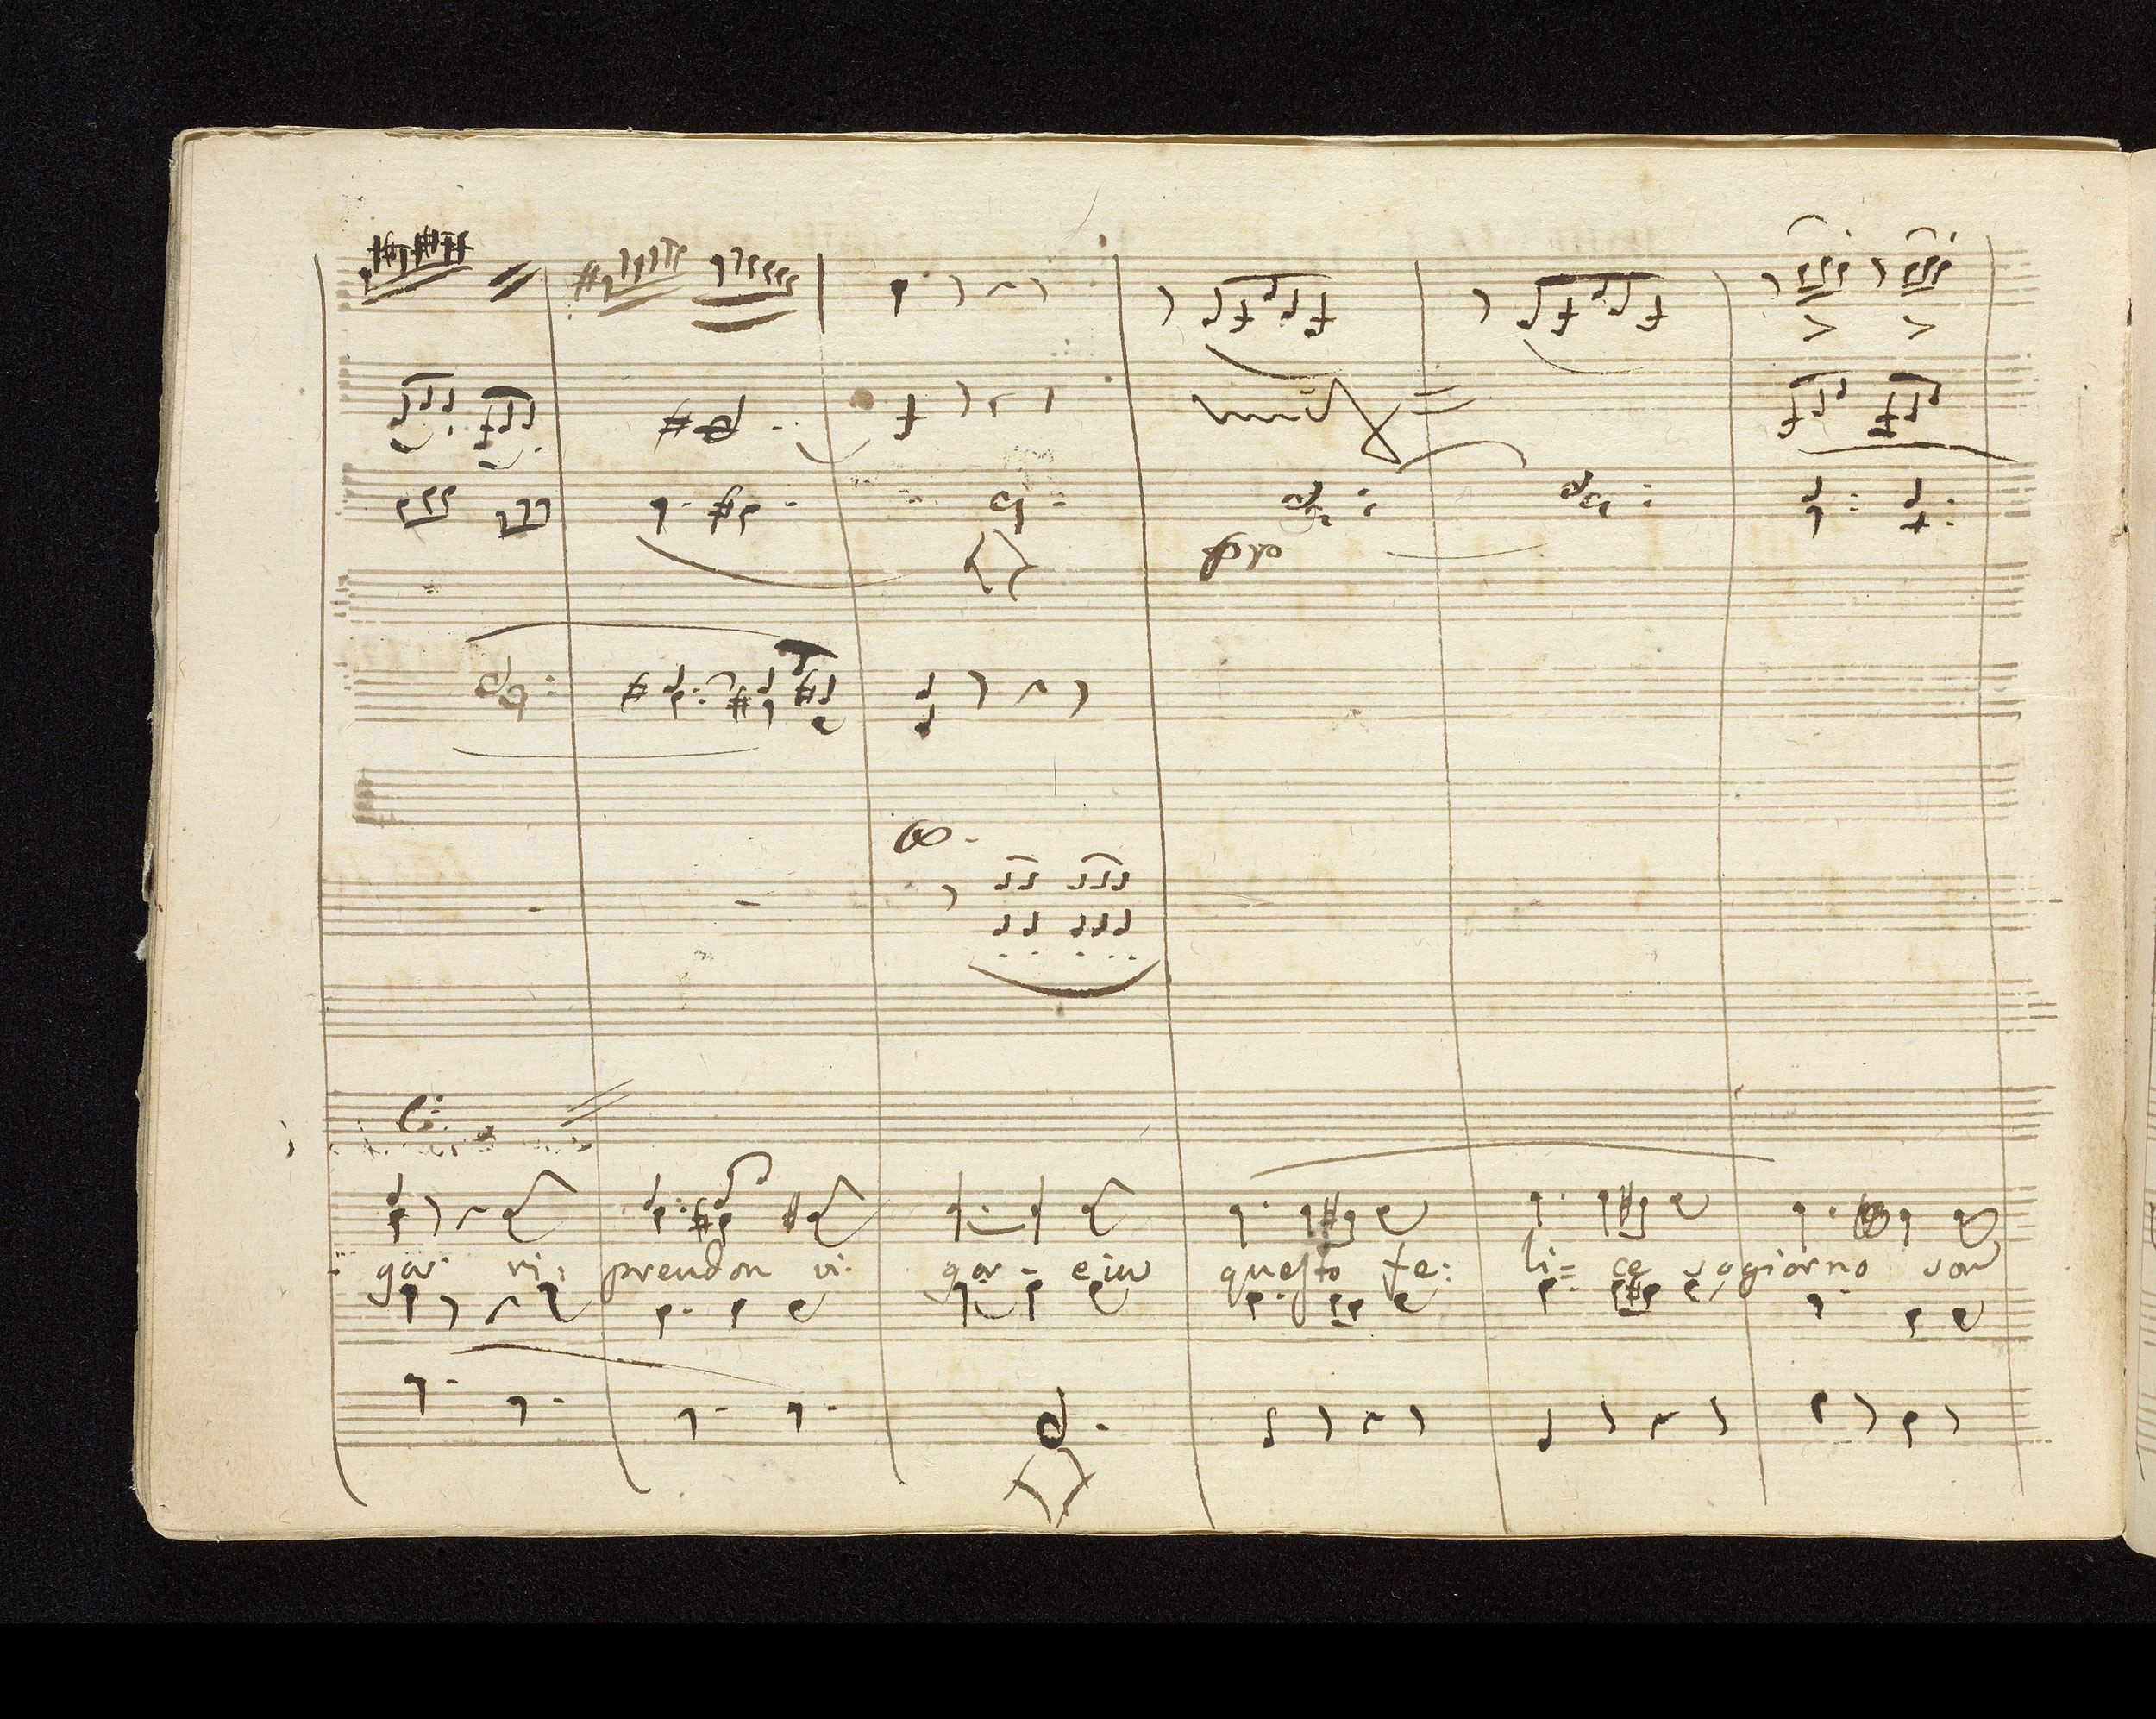 pro
gor ri: prendon vi: gor - e in questo fe: li= ce sogiorno son